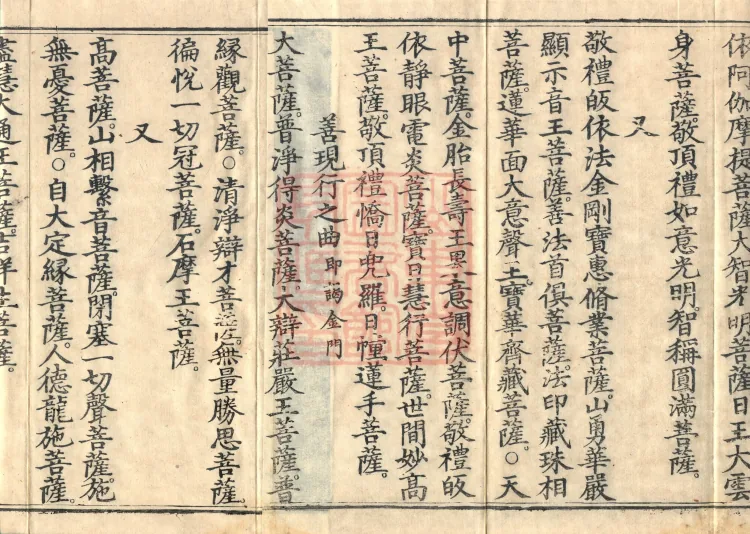 依阿伽摩提菩薩大智光明菩薩日王大雲
身菩薩。敬頂禮如意光明。智稱圓滿菩薩。
又
敬禮皈依法金剛寶惠脩業菩薩。山勇華嚴
顯示音王菩薩。善法首俱菩薩。法印藏珠相
菩薩。蓮華面大意聲王。寶華齊藏菩薩。○天
中菩薩。金胎長壽王。意調伏菩薩。敬禮皈
依靜眼電炎菩薩。寶日慧行菩薩。世間妙高
王菩薩。敬頂禮憍日兜羅。日幢蓮手菩薩。
善現行之曲即謁金門
大菩薩。普淨得炎菩薩。大辯莊嚴王菩薩。普
緣觀菩薩。○清淨辯才菩薩。無量勝思菩薩。
徧悅一切冠菩薩。石摩王菩薩。
又
高菩薩。山相繫音菩薩。閉塞一切聲菩薩。施
無憂菩薩。○自大定緣菩薩。人德龍施菩薩。
慧大通王菩薩。吉祥菩薩。